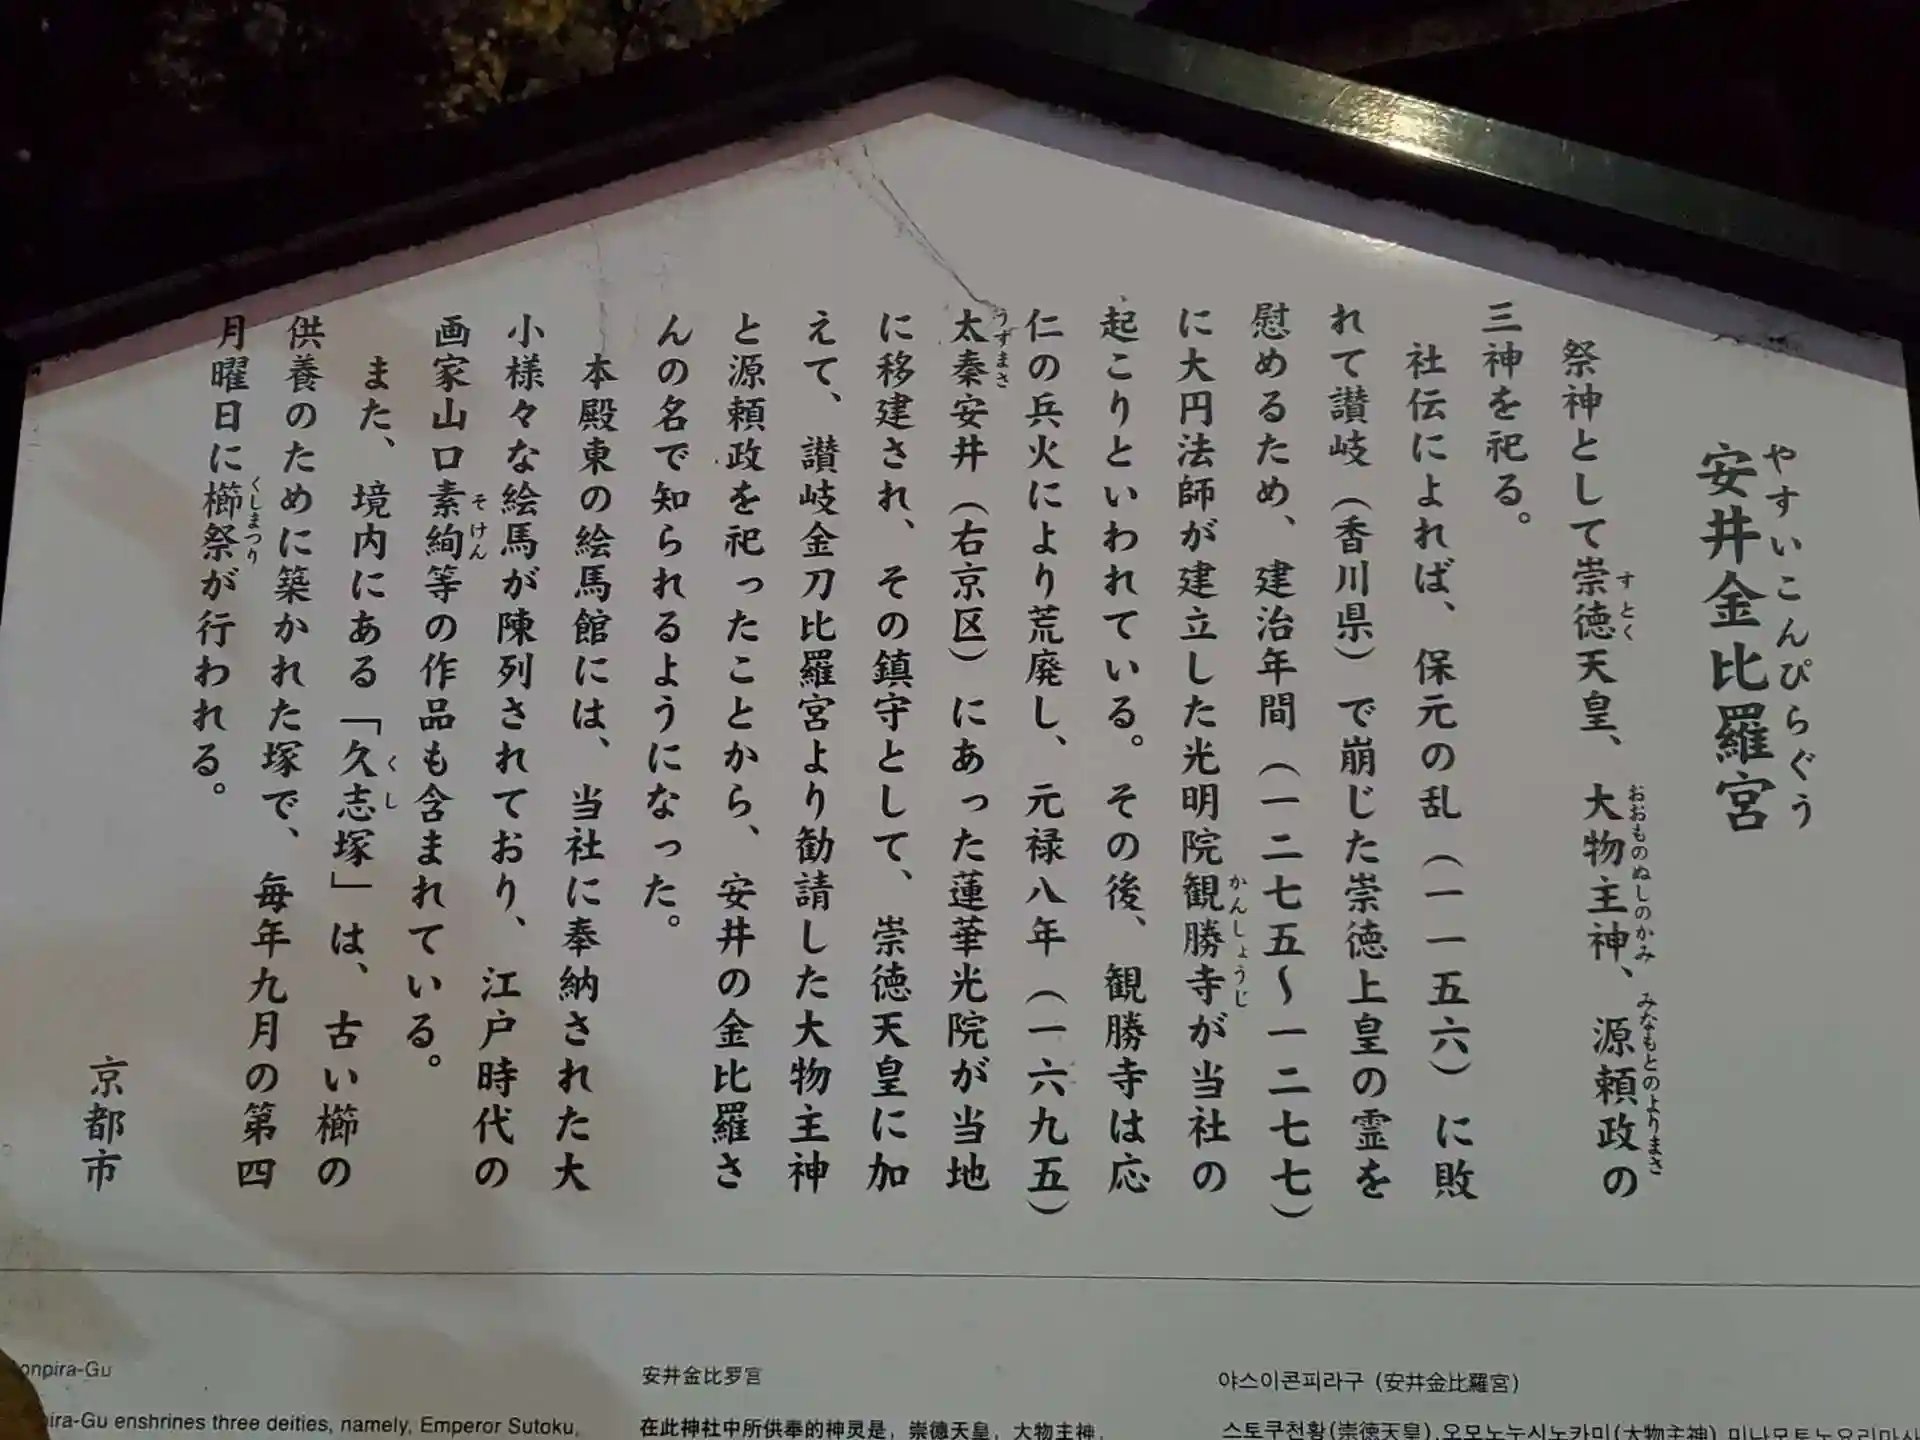 安井金比羅宮
やすいこんぴらぐう
祭神として崇徳天皇、大物主神、源頼政の
すとく
おおものぬしのかみ
みなもとのよりまさ
三神を祀る。
社伝によれば、保元の乱（一一五六）に敗
れて讃岐（香川県）で崩じた崇徳上皇の霊を
慰めるため、建治年間（一二七五～一二七七）
に大円法師が建立した光明院観勝寺が当社の
かんしょうじ
起こりといわれている。その後、観勝寺は応
仁の兵火により荒廃し、元禄八年（一六九五）
太秦安井（右京区）にあった蓮華光院が当地
うずまさ
に移建され、その鎮守として、崇徳天皇に加
えて、讃岐金刀比羅宮より勧請した大物主神
と源頼政を祀ったことから、安井の金比羅さ
んの名で知られるようになった。
本殿東の絵馬館には、当社に奉納された大
小様々な絵馬が陳列されており、江戸時代の
画家山口素絢等の作品も含まれている。
そけん
また、境内にある「久志塚」は、古い櫛の
くし
供養のために築かれた塚で、毎年九月の第四
月曜日に櫛祭が行われる。
くしまつり
京都市
onpira-Gu
pira-Gu enshrines three deities, namely, Emperor Sutoku,
安井金比罗宫
在此神社中所供奉的神灵是，崇德天皇，大物主神，
야스이콘피라구 (安井金比羅宮)
스토쿠천황(崇徳天皇),오모노누시노카미(大物主神),미나모토노요리마사